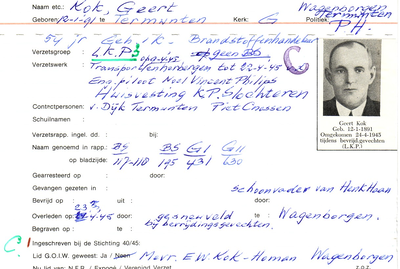 Naam etc.: Kok, Geert Wagenborgen
Geboren: 12-1-91 te Termunten Kerk: G Politiek: Termunten
P.H.
54 jr Geh. 1 k. Brandstoffenhandelaar
Verzetsgroep: L.K.P. op 9-4-45 geen BS
Verzetswerk Transport Wennerbergen tot 22-4-45
Eng. piloot Noel Vincent Philips
Huisvesting K.P. Slochteren
Contractpersonen: v. Dijk Termunten Piet Cnossen
Schuilnaam :
Geert Kok
Geb. 12-1-1891
Omgekomen 24-4-1945
tijdens bevrijd.gevechten
(L.K.P.)
Verzetsrapp. ingel. dd. : bij:
Naam genoemd in rapp.: BS BS G1 G11
op bladzijde: 117-118 195 431 630
Gearresteerd op : door:
Gevangen gezeten in : schoonvader van Henk Haan
Bevrijd op : uit : door:
Overleden op : 23/24-4-45 door: gesneuveld te : Wagenborgen.
Begraven op : te : bij bevrijdingsgevechten.
Ingeschreven bij de Stichting 40/45:
Lid G.O.I.W. geweest: Ja / Neen Mevr. E.W. Kok-Heman Wagenborgen